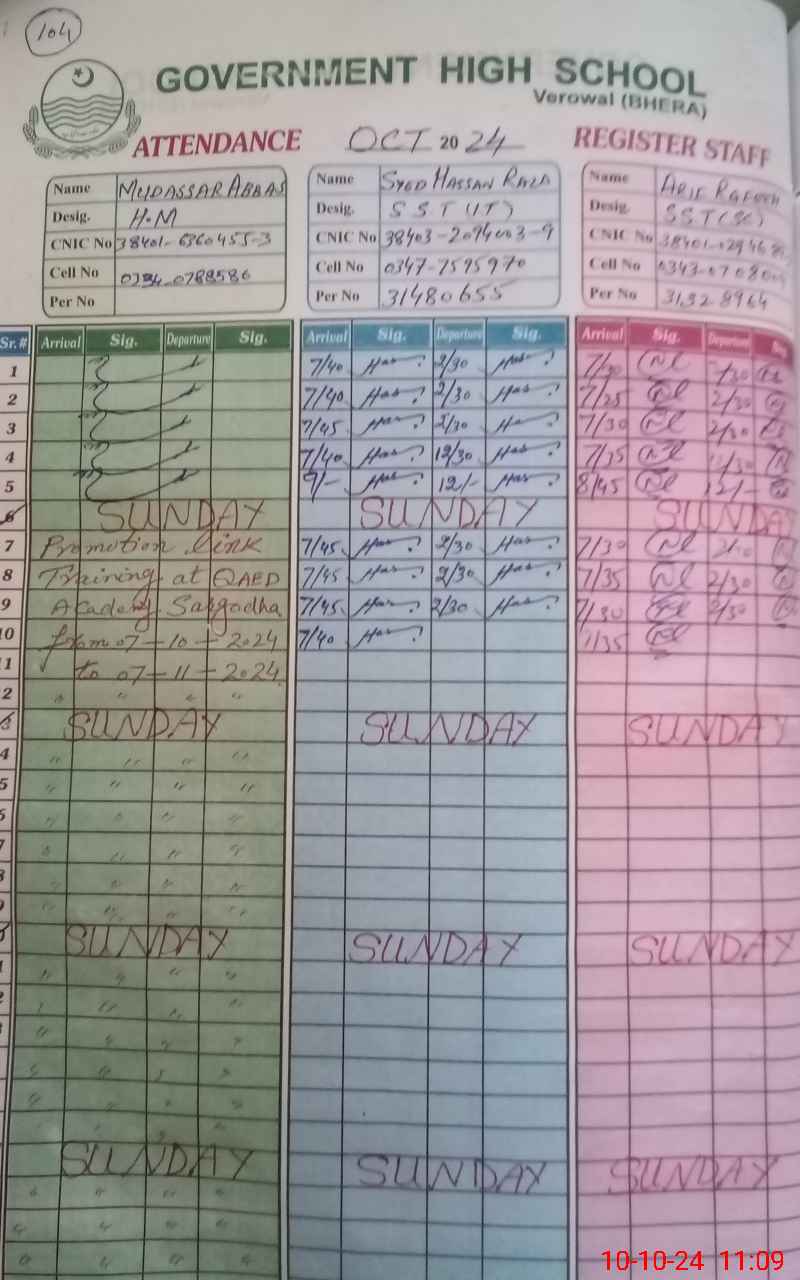 104
GOVERNMENT HIGH SCHOOL
Verowal (BHERA)
ATTENDANCE OCT 2024 REGISTER STAFF
Name MUDASSAR ABBAS
Desig. H.M
CNIC No 38401-6360455-3
Cell No 0788586
Per No
Name SYED HASSAN RAZA
Desig. SST (IT)
CNIC No 38403-2094003-9
Cell No 0347-7595970
Per No 31480655
Name ARIF
Desig. SST (SC)
CNIC No
Cell No
Per No 31328964
Sr. # Arrival Sig. Departure Sig. Arrival Sig. Departure Sig. Arrival Sig. Departure Sig
1 7/40 Has 2/30 Has
2 7/40 Has 2/30 Has 7/25 2/30
3 7/45 Has 2/30 Ha 7/30 2/30
4 7/40 Has 12/30 Has 7/35
5 9/- Has 12/- Has 8/45 12/-
6 SUNDAY SUNDAY SUNDAY
7 Promotion Link 7/45 Has 2/30 Has 7/30
8 Training at QAED 7/45 Has 2/30 Has 7/35 2/30
9 Academy Sargodha 7/45 Has 2/30 Has 7/30 2/30
10 from 07-10-2024 7/40 Has 7/35
11 to 07-11-2024
2 " " " "
3 SUNDAY SUNDAY SUNDAY
4 " " " "
5 " " " "
5 " " " "
7 " " " "
" " " "
" " " "
SUNDAY SUNDAY SUNDAY
1 " " " "
2 " " " "
" " " "
" " " "
" " " "
" " " "
SUNDAY SUNDAY SUNDAY
" " " "
" " " "
" " " "
10-10-24 11:09